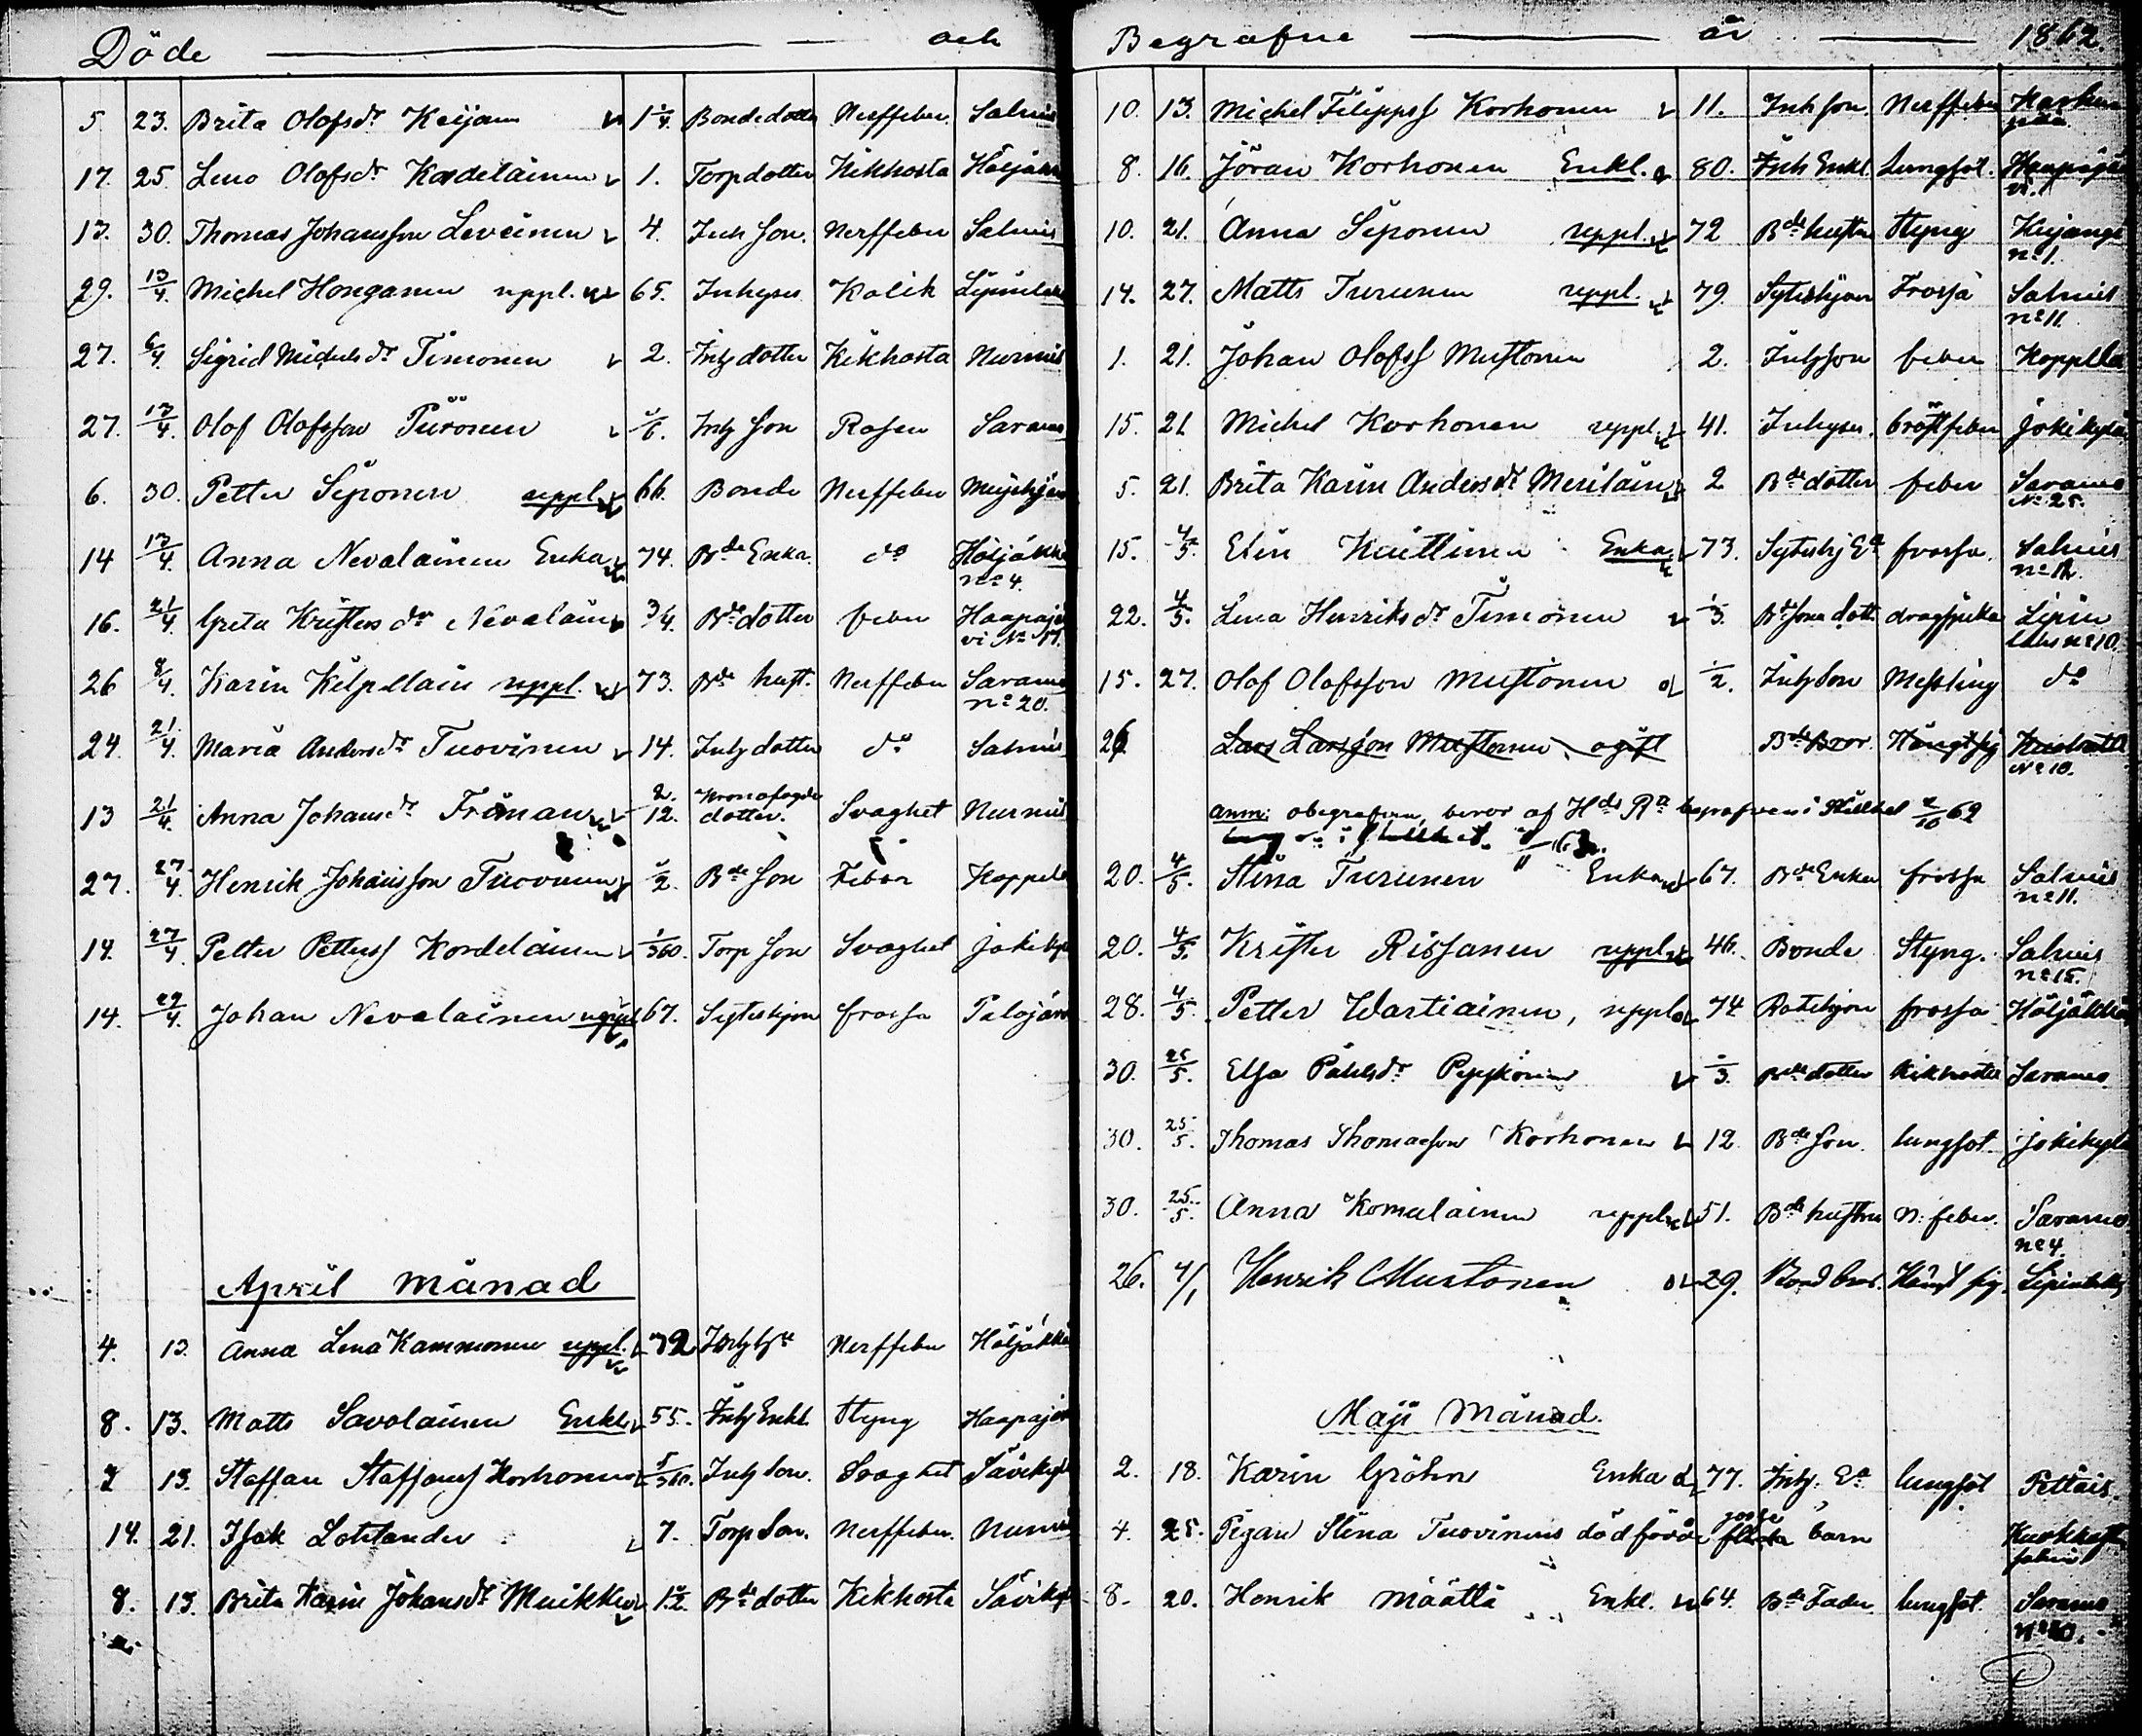 Döde och
5 23. Brita Olofsdr Keijan Bondedotter Nerffeber. Salmis
17. 25. Lena Olofsdr Kordelainen 1. Torpdotter Kikhosta Höljäkkä
13. 30. Thomas Johansson Leveinen 4. Inh son. Nerffeber Salmis
29. 13/4. Michel Honganen uppl. 65. Inhyses Kolik
27. 6/4. Sigrid Michelsdr Timonen 2. Inhdotter Kikhosta Nurmis
27. 13/4. Olof Olofsson Piironen Inh Son Rosen Saramo
6. 30. Petter Siponen uppl. 66. Bonde Nerffeber
14 13/4. Anna Nevalainen Enka 74. Bde Enka. do Höljäkkä
no 4.
16. 21/4. Greta Kristersdr Nevalain 3/4. Bde dotter feber Haapajär
vi No 51.
26 8/4. Karin Kilpelläin uppl. 73. Bde hust. Nerffeber Saramo
no 20.
24. 21/4. Maria Andersdr Tuovinen 14. Inhdotter do Salmis
13 21/4. Anna Johansdr Friman 2/12. Kronofogde
dotter. Svaghet Nurmis
27. 27/4. Henrik Johansson Tuovinen 1/2. Bde Son Feber Koppelo
14. 27/4. Petter Petters Kordelainen 1/360. Torp Son Svaghet Jokikylä
14. 29/4. Johan Nevalainen uppl. 67. Syteshjon frossa Palojärvi
April månad
4. 13. Anna Lena Kammonen uppl. 72 Nerffeber Höljäkkä
8. 13. Matts Savolainen Enkl. 55. Inh Enkl. Styng Haapajärvi
7 13. Staffan Staffans Korhonen 5/360. Inh Son. Svaghet Savikylä
14. 21. Isak Lohlander 7. Torp Son. Nerffeber. Nurmis
8. 13. Brita Karin Johansdr Muikku 1 1/2. Bde dotter Kikhosta Savikylä
Begrafne år 1862.
10. 13. Michel Filipps Korhonen 11. Inh son. Nerffeber
8. 16. Jöran Korhonen Enkl. 80. Inh Enkl. Lungsot. Haapajär
vi.
10. 21. Anna Siponen uppl. 72 Bde hustru Styng
no 1.
14. 27. Matts Turunen uppl. 79. Syteshjon Frossa Salmis
no 11.
1. 21. Johan Olofss Mustonen 2. Inhson feber Koppelo
15. 21 Michel Korhonen uppl. 41. Inhyses. bröstfeber Jokikylä
5. 21. Brita Karin Andersdr Meriläin 2 Bde dotter feber Saramo
No 25.
15. 4/5. Elin Enka 73. Syteshj Ea frossa. Salmis
no 12.
22. 4/5. Lena Henriksdr Timonen 1/3. Bde Sons dott. dragsjuka Lipin
lahs no 10.
15. 27. Olof Olofsson Mustonen 1/2. Inh Son Messling do
26 Lars Larsson Mustonen, ogift Bde Bror. Hängt sig
No 10.
anm: obegrafven, beror af Hds Rn begrafven i Stillhet 62
20. 4/5. Stina Turunen Enka 67. Bde Enka frossa Salmis
no 11.
20. 4/5. Krister Rissanen uppl. 46. Bonde Styng. Salmis
no 15.
28. 4/5. Petter Wartiainen, uppl. 74 Rotehjon frossa Höljäkkä
30. 25/5. Elsa Påhlsdr Pyykönen 1/3. Bde dotter Kikhosta Saramo
30. 25/5. Thomas Thomasson Korhonen 12. Bde Son. lungsot Jokikylä
30. 25/5. Anna Komulainen uppl. 51. Bde hustru N. feber. Saramo
no 4.
26. 4/1 Henrik Mustonen 29. Bond bror. Hängt sig.
Maji Månad.
2. 18. Karin Gröhn Enka 77. Inh. Ea lungsot
4. 25. Pigan Stina Tuovinens dödfödde gosse barn
8. 20. Henrik Määttä Enkl. 64. Bde Fader. lungsot. Saramo